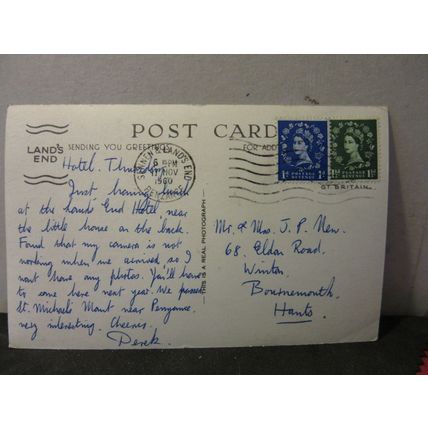 POST CARD
LAND'S END
SENDING YOU GREETINGS
FOR ADD
SENNEN & LAND'S END
6 PM
17 NOV
1960
PENZANCE
POSTAGE REVENUE
1d 1d
POSTAGE REVENUE
1½d 1½d
GT BRITAIN.
Hotel. Thursday
Just having lunch
at the Lands End Hotel near
the little house on the back.
Found that my camera is not
working when we arrived so I
wont have any photos. You'll have
to come here next year. We passed
St. Michaels Mount near Penzance.
very interesting. Cheerio.
Derek.
THIS IS A REAL PHOTOGRAPH
Mr. & Mrs. J. P. New.
68. Eldon Road.
Winton.
Bournemouth.
Hants.